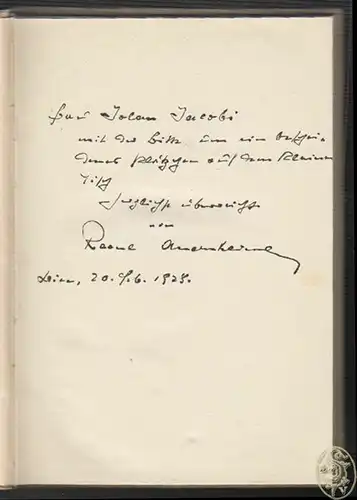 Frau Jolan Jacobi
mit der Bitte um ein beschei-
denes Plätzchen auf dem kleinen
Tisch
herzlichst überreicht
von
Raoul Auernheimer
Wien, 20. 1929.